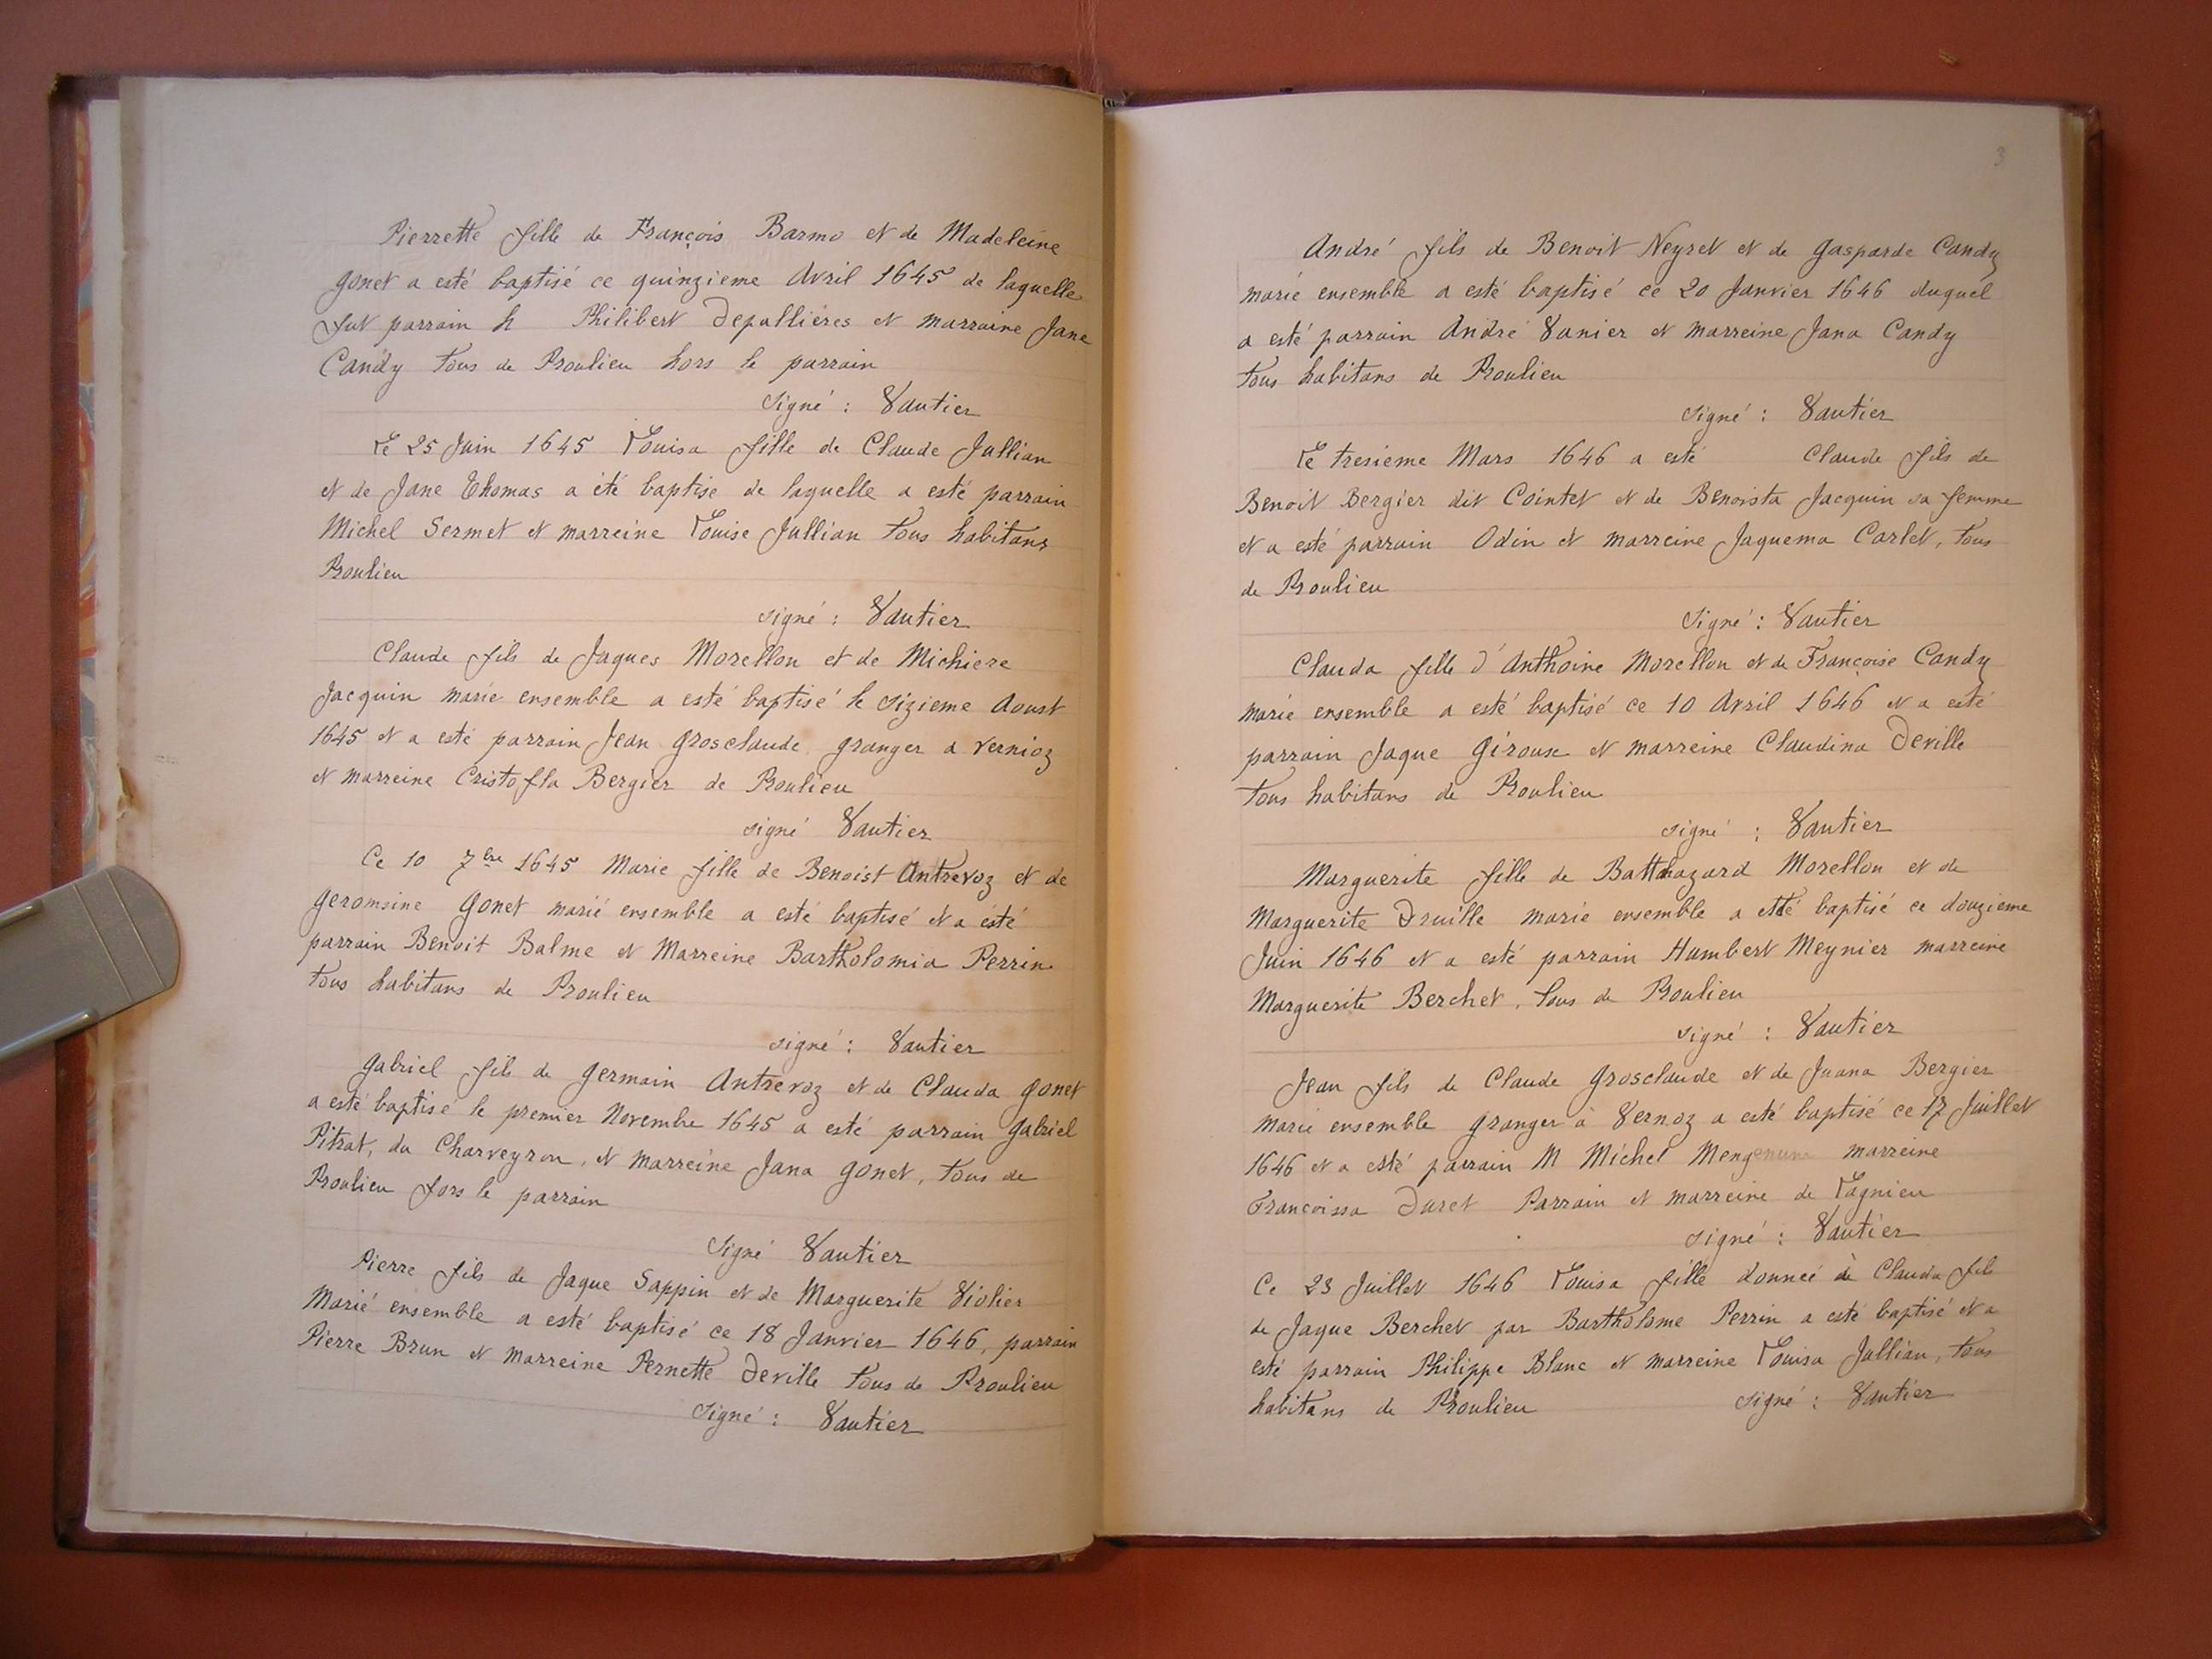 Pierrette fille de François Barmo et de Madeleine
gonet a esté baptisé ce quinzieme Avril 1645 de laquelle
fut parrain h Philibert Depallieres et marraine Jane
Candy tous de Proulieu hors le parrain
signé : Vautier
Le 25 Juin 1645 Louisa fille de Claude Jullian
et de Jane Thomas a été baptise de laquelle a esté parrain
Michel Sermet et marreine Louise Jullian tous habitans
Proulieu
signé : Vautier
Claude fils de Jaques Morellon et de Michiere
Jacquin marié ensemble a esté baptisé le sizieme Aoust
1645 et a esté parrain Jean Grosclaude granger a Vernioz
et marreine Cristofla Bergier de Proulieu
signé Vautier
Ce 10 7bre 1645 Marie fille de Benoist Antrevoz et de
Geromsine Gonet marié ensemble a esté baptisé et a esté
parrain Benoit Balme et Marreine Bartholomia Perrin
tous habitans de Proulieu
signé : Vautier
Gabriel fils de Germain Antrevoz et de Clauda Gonet
a esté baptisé le premier Novembre 1645 a esté parrain Gabriel
Pitrat, du Charveyron, et marreine Jana Gonet, tous de
Proulieu fors le parrain
Signé Vautier
Pierre fils de Jaque Sappin et de Marguerite Violier
Marié ensemble a esté baptisé ce 18 Janvier 1646, parrain
Pierre Brun et marreine Pernette Deville tous de Proulieu
Signé : Vautier
3
André fils de Benoit Neyret et de Gasparde Candy
marié ensemble a esté baptisé ce 20 Janvier 1646 duquel
a esté parrain André Vanier et marreine Jana Candy
tous habitans de Proulieu
signé : Vautier
Le tresieme Mars 1646 a esté Claude fils de
Benoit Bergier dit Cointet et de Benoista Jacquin sa femme
et a esté parrain Odin et marreine Jaquema Carlet, tous
de Proulieu
Signé : Vautier
Clauda fille d'Anthoine Morellon et de Françoise Candy
marié ensemble a esté baptisé ce 10 Avril 1646 et a esté
parrain Jaque Girouse et marreine Claudina Deville
tous habitans de Proulieu
signé : Vautier
Marguerite fille de Batthazard Morellon et de
Marguerite Druille marié ensemble a etté baptisé ce douzieme
Juin 1646 et a esté parrain Humbert Meynier marreine
Marguerite Berchet, tous de Proulieu
signé : Vautier
Jean fils de Claude Grosclaude et de Juana Bergier
marié ensemble granger à Vernoz a esté baptisé ce 17 Juillet
1646 et a esté parrain M Michel marreine
Francoissa Duret Parrain et marreine de Lagnieu
signé : Vautier
Ce 23 Juillet 1646 Louisa fille donneé à Clauda fils
de Jaque Berchet par Bartholome Perrin a esté baptisé et a
esté parrain Philippe Blanc et marreine Louisa Jullian, tous
habitans de Proulieu signé : Vautier